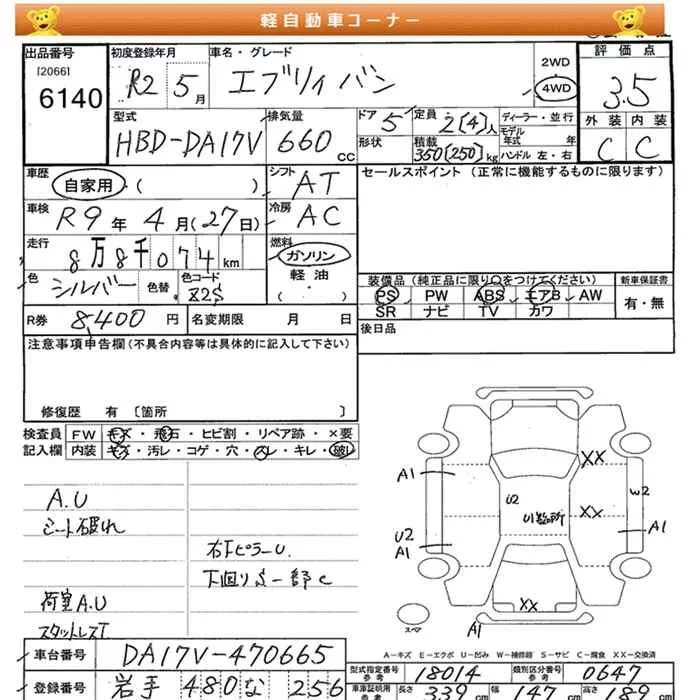 軽自動車コーナー
出品番号 [2066] 6140
初度登録年月 R2 5月
車名・グレード エブリイバン
2WD
4WD
評価点 3.5
外装 C 内装 C
型式 HBD-DA17V
排気量 660 CC
ドア 5
形状
定員 2[4]人
積載 350[250]kg
ディーラー・並行
モデル年式 年
ハンドル 左・右
車歴 自家用 ( )
シフト AT
セールスポイント (正常に機能するものに限ります)
車検 R9年 4月(27日)
冷房 AC
走行 8万8千074km
燃料 ガソリン
軽油
( ・ )
色 シルバー 色替 色コード 82S
装備品 (純正品に限り○をつけてください)
PS PW ABS エアB AW
SR ナビ TV カワ
新車保証書 有・無
R券 8,400円
名変期限 月 日
後日品
注意事項申告欄 (不具合内容等は具体的に記入して下さい)
修復歴 有 [箇所 ]
検査員記入欄
FW キズ・飛石・ヒビ割・リペア跡・×要
内装 キズ・汚レ・コゲ・穴・スレ・キレ・破レ
A.U
シート破れ
右下ピラーU.
下回りS一部C
荷室A.U
スタットレスT
XX
A1
W2
U2
XX
A1
U2
A1
XX
スペア
A1
A-キズ E-エクボ U-凹み W-補修跡 S-サビ C-腐食 XX-交換済
車台番号 DA17V-470665
型式指定番号 参考 18014
類別区分番号 参考 0647
登録番号 岩手 480 な 256
車庫証明用 参考 長さ 339 cm 幅 147 cm 高さ 189 cm